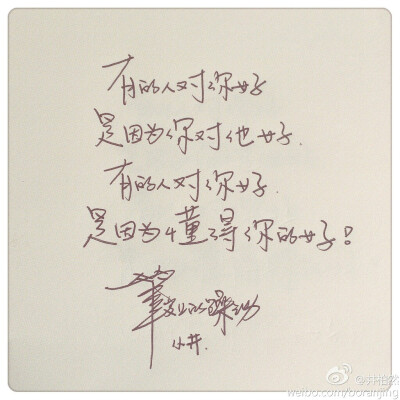 有的人对你好
是因为你对他好.
有的人对你好.
是因为懂得你的好!
小井.
@井柏然
weibo.com/boranjing